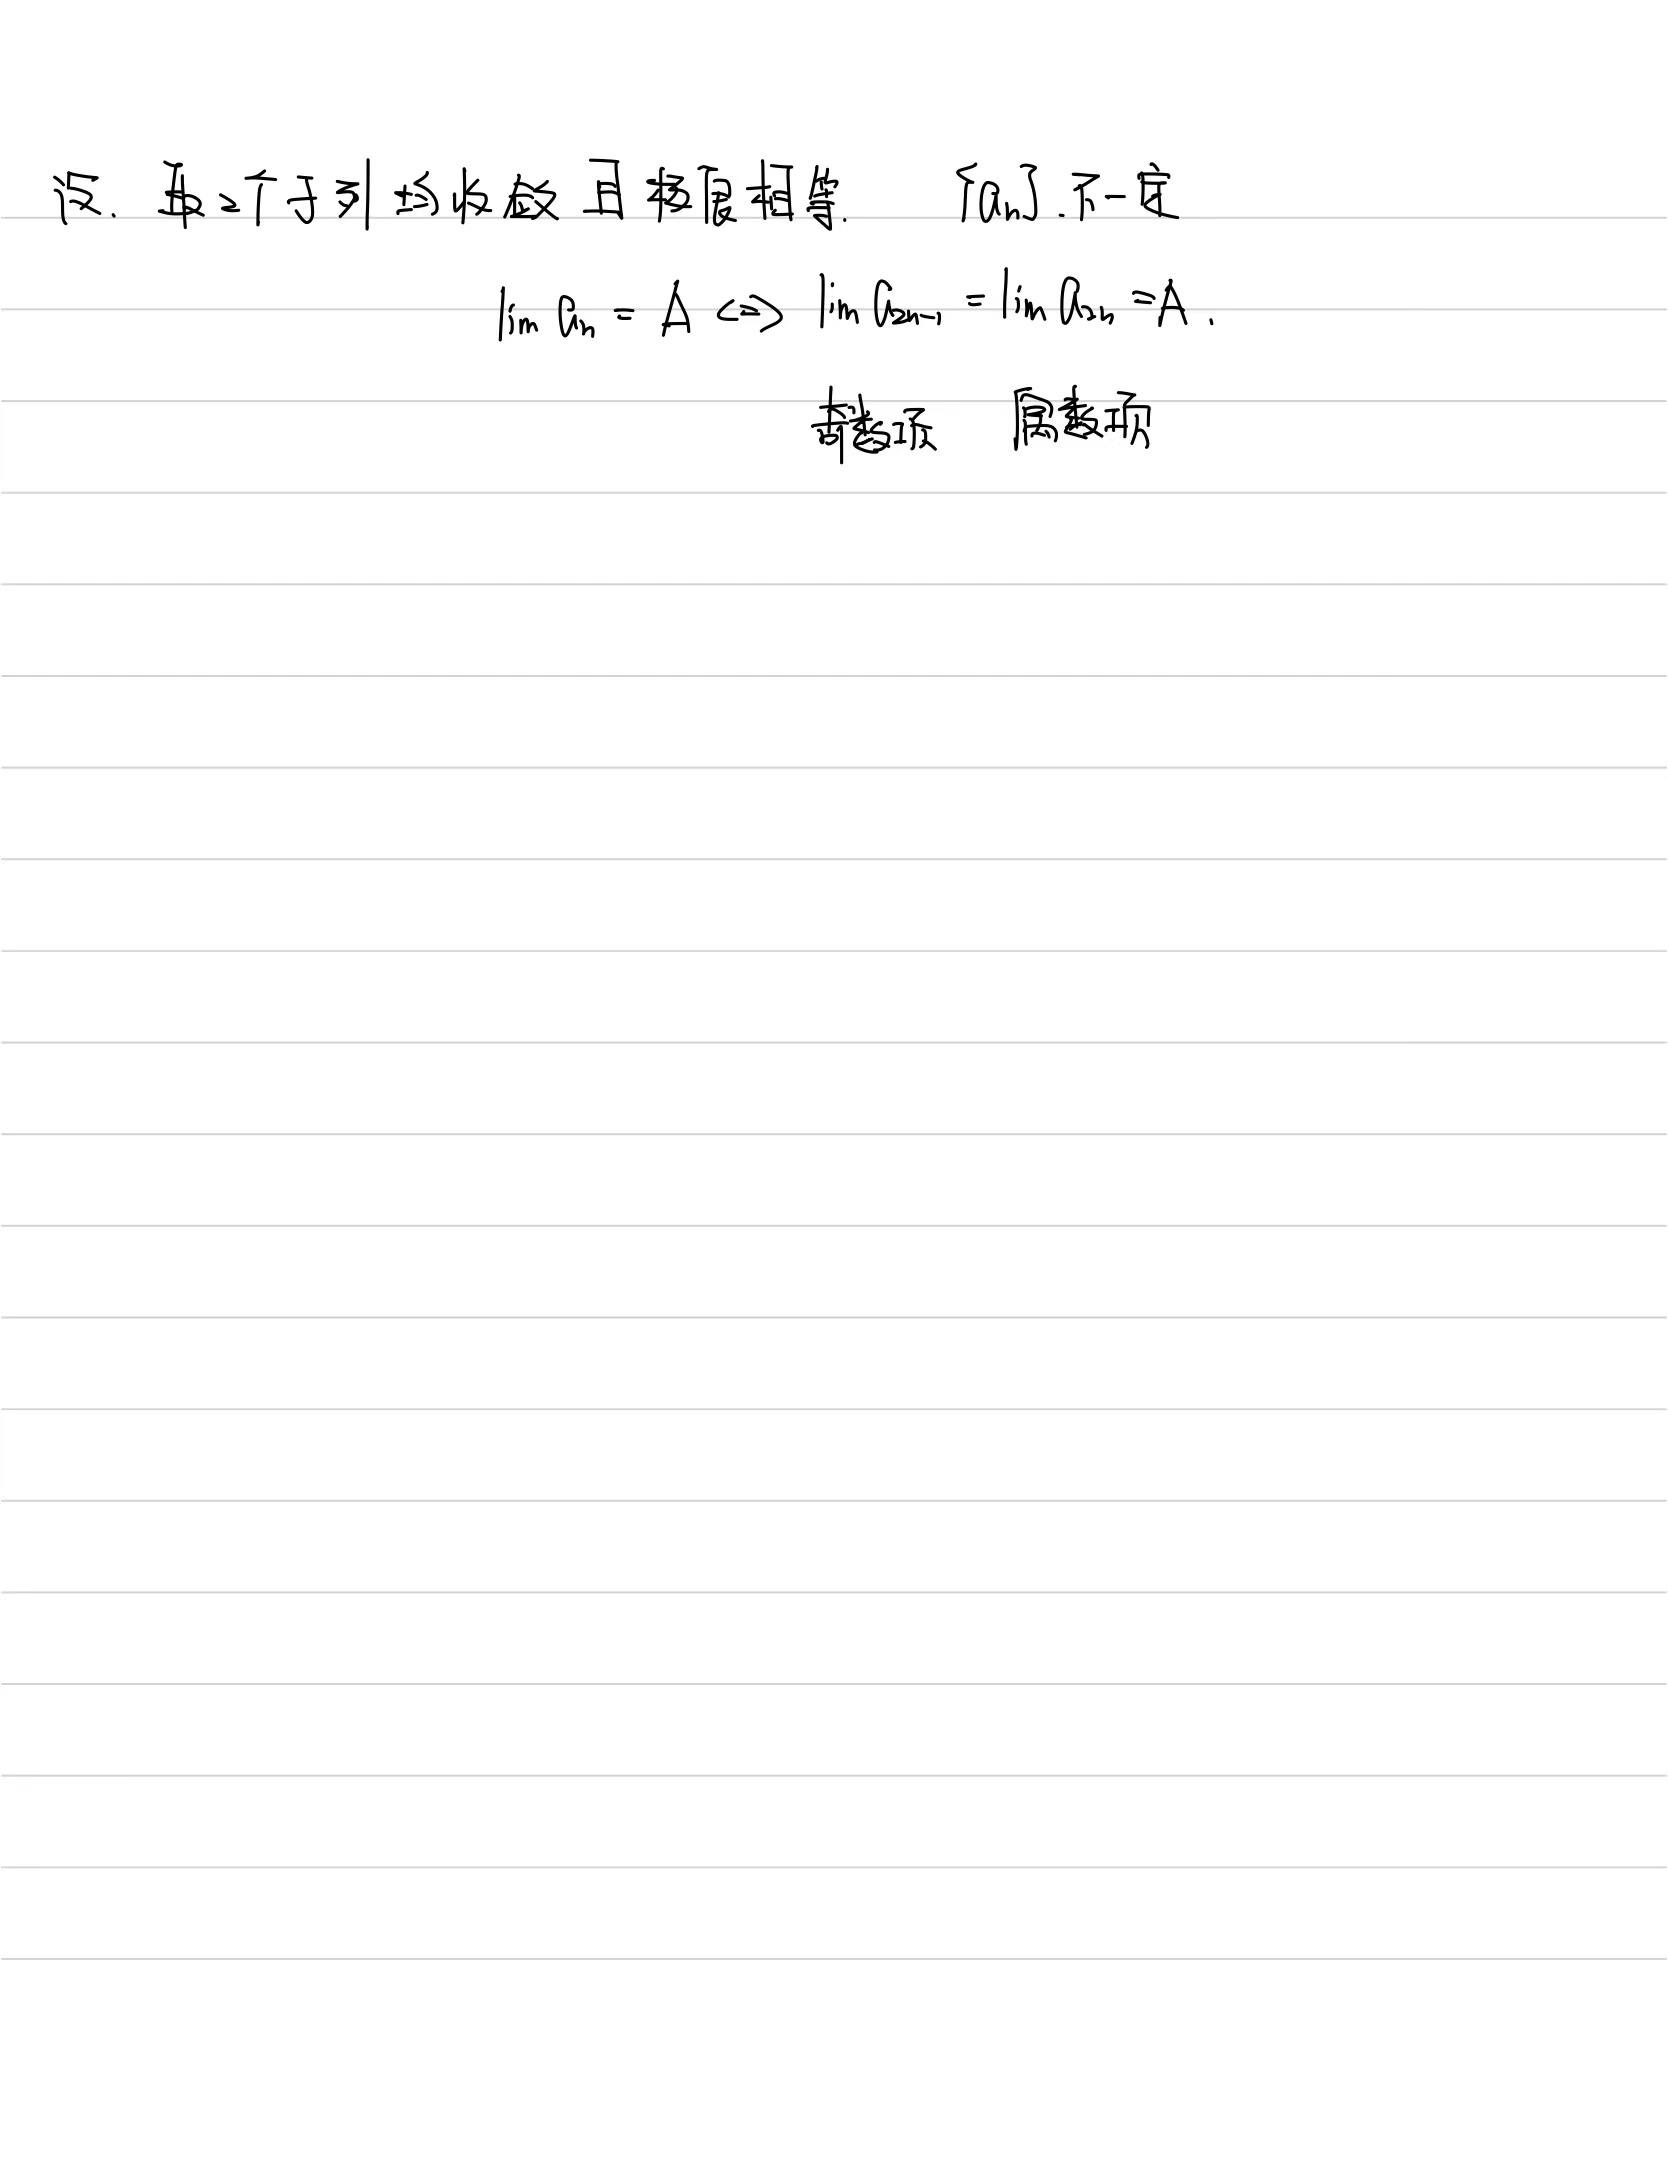 设. 再2个子列均收敛且极限相等. {aₙ}.不一定
lim aₙ = A <=> lim a₂ₙ₋₁ = lim a₂ₙ = A.
奇数项 偶数项